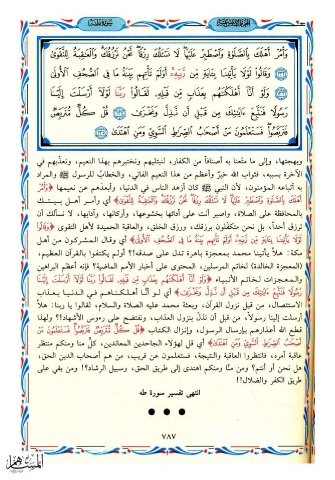 سورة طه
وَأْمُرْ أَهْلَكَ بِالصَّلَوٰةِ وَاصْطَبِرْ عَلَيْهَا لَا نَسْـَٔلُكَ رِزْقًا نَّحْنُ نَرْزُقُكَ وَالْعَٰقِبَةُ لِلتَّقْوَىٰ
وَقَالُوا۟ لَوْلَا يَأْتِينَا بِـَٔايَةٍ مِّن رَّبِّهِۦٓ أَوَلَمْ تَأْتِهِم بَيِّنَةُ مَا فِى الصُّحُفِ الْأُولَىٰ
وَلَوْ أَنَّآ أَهْلَكْنَٰهُم بِعَذَابٍ مِّن قَبْلِهِۦ لَقَالُوا۟ رَبَّنَا لَوْلَآ أَرْسَلْتَ إِلَيْنَا
رَسُولًا فَنَتَّبِعَ ءَايَٰتِكَ مِن قَبْلِ أَن نَّذِلَّ وَنَخْزَىٰ قُلْ كُلٌّ مُّتَرَبِّصٌ
فَتَرَبَّصُوا۟ فَسَتَعْلَمُونَ مَنْ أَصْحَٰبُ الصِّرَٰطِ السَّوِىِّ وَمَنِ اهْتَدَىٰ
وبهجتها، وإلى ما متعنا به أصنافاً من الكفار، لنبتليهم ونختبرهم بهذا النعيم، ونعذبهم في
الآخرة بسببه، فثواب الله خيرٌ وأعظم من هذا النعيم الفاني، والخطاب للرسول ﷺ والمراد
به أتباعه المؤمنون، لأن النبي ﷺ كان أزهد الناس في الدنيا، وأبعدهم عن نعيمها ﴿وَأْمُرْ
أَهْلَكَ بِالصَّلَوٰةِ وَاصْطَبِرْ عَلَيْهَا لَا نَسْـَٔلُكَ رِزْقًا نَّحْنُ نَرْزُقُكَ وَالْعَٰقِبَةُ لِلتَّقْوَىٰ﴾ أي وأمر أهل بيتك
بالمحافظة على الصلاة، واصبر أنت على أدائها بخشوعها، وأركانها، وآدابها، لا نسألك أن
ترزق أحداً، بل نحن متكفلون برزقك، ورزق الخلق، والعاقبة الحميدة لأهل التقوى ﴿وَقَالُوا۟
لَوْلَا يَأْتِينَا بِـَٔايَةٍ مِّن رَّبِّهِۦٓ أَوَلَمْ تَأْتِهِم بَيِّنَةُ مَا فِى الصُّحُفِ الْأُولَىٰ﴾ أي وقال المشركون من أهل
مكة: هلّا يأتينا محمد بمعجزة باهرة تدل على صدقه؟! أولم يكتفوا بالقرآن العظيم،
(المعجزة الخالدة) لخاتم المرسلين، المحتوي على أخبار الأمم الماضية؟ فإنه أعظم البراهين
والمعجزات لخاتم الأنبياء ﴿وَلَوْ أَنَّآ أَهْلَكْنَٰهُم بِعَذَابٍ مِّن قَبْلِهِۦ لَقَالُوا۟ رَبَّنَا لَوْلَآ أَرْسَلْتَ إِلَيْنَا
رَسُولًا فَنَتَّبِعَ ءَايَٰتِكَ مِن قَبْلِ أَن نَّذِلَّ وَنَخْزَىٰ﴾ أي لو أنا أهلكناهم في الدنيا بعذاب
الاستئصال، من قبل نزول القرآن، وبعثة محمد عليه الصلاة والسلام، لقالوا يا ربنا: هلّا
أرسلت إلينا رسولاً، من قبل أن نذل بنزول العذاب، ونفتضح على رءوس الأشهاد؟! ولهذا
قطع الله أعذارهم بإرسال الرسول، وإنزال الكتاب ﴿قُلْ كُلٌّ مُّتَرَبِّصٌ فَتَرَبَّصُوا۟ فَسَتَعْلَمُونَ مَنْ
أَصْحَٰبُ الصِّرَٰطِ السَّوِىِّ وَمَنِ اهْتَدَىٰ﴾ أي قل لهؤلاء الجاحدين المعاندين، كلٌّ منا ومنكم منتظر
عاقبة أمره، فانتظروا العاقبة والنتيجة، فستعلمون عن قريب، من هم أصحاب الدين الحق،
هل نحن أو أنتم؟ ومن منّا ومنكم اهتدى إلى طريق الحق، وسبيل الرشاد؟! ومن بقي على
طريق الكفر والضلال!!
انتهى تفسير سورة طه
٧٨٧